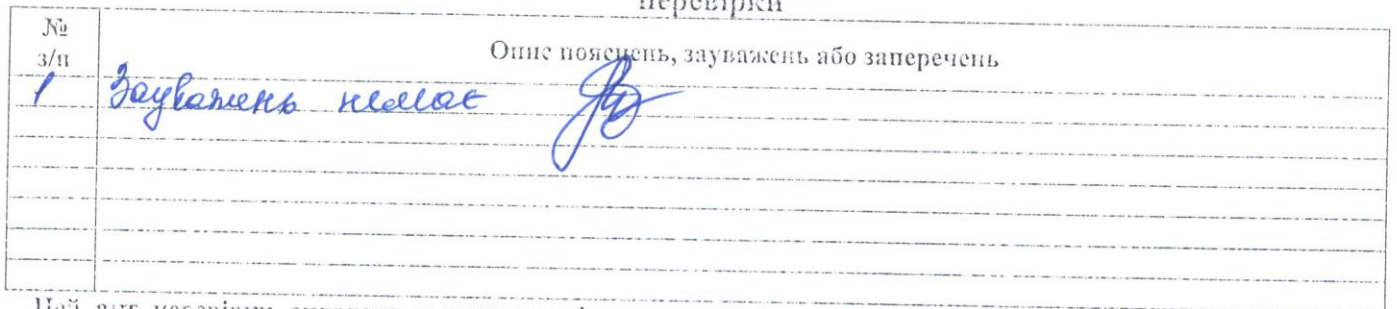 перевірки
№
з/п
Опис пояснень, зауважень або заперечень
1 Зауважень немає
Цей акт перевірки